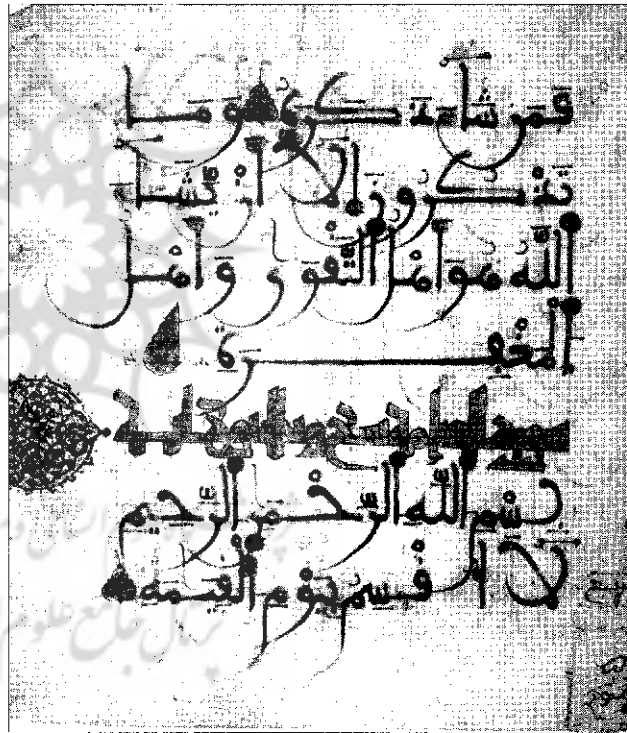 فمن شاء ذكره وما
يذكرون إلا أن يشاء
الله هو أهل التقوى وأهل
المغفرة
بسم الله الرحمن الرحيم
لا أقسم بيوم القيمة
پرتال جامع علوم